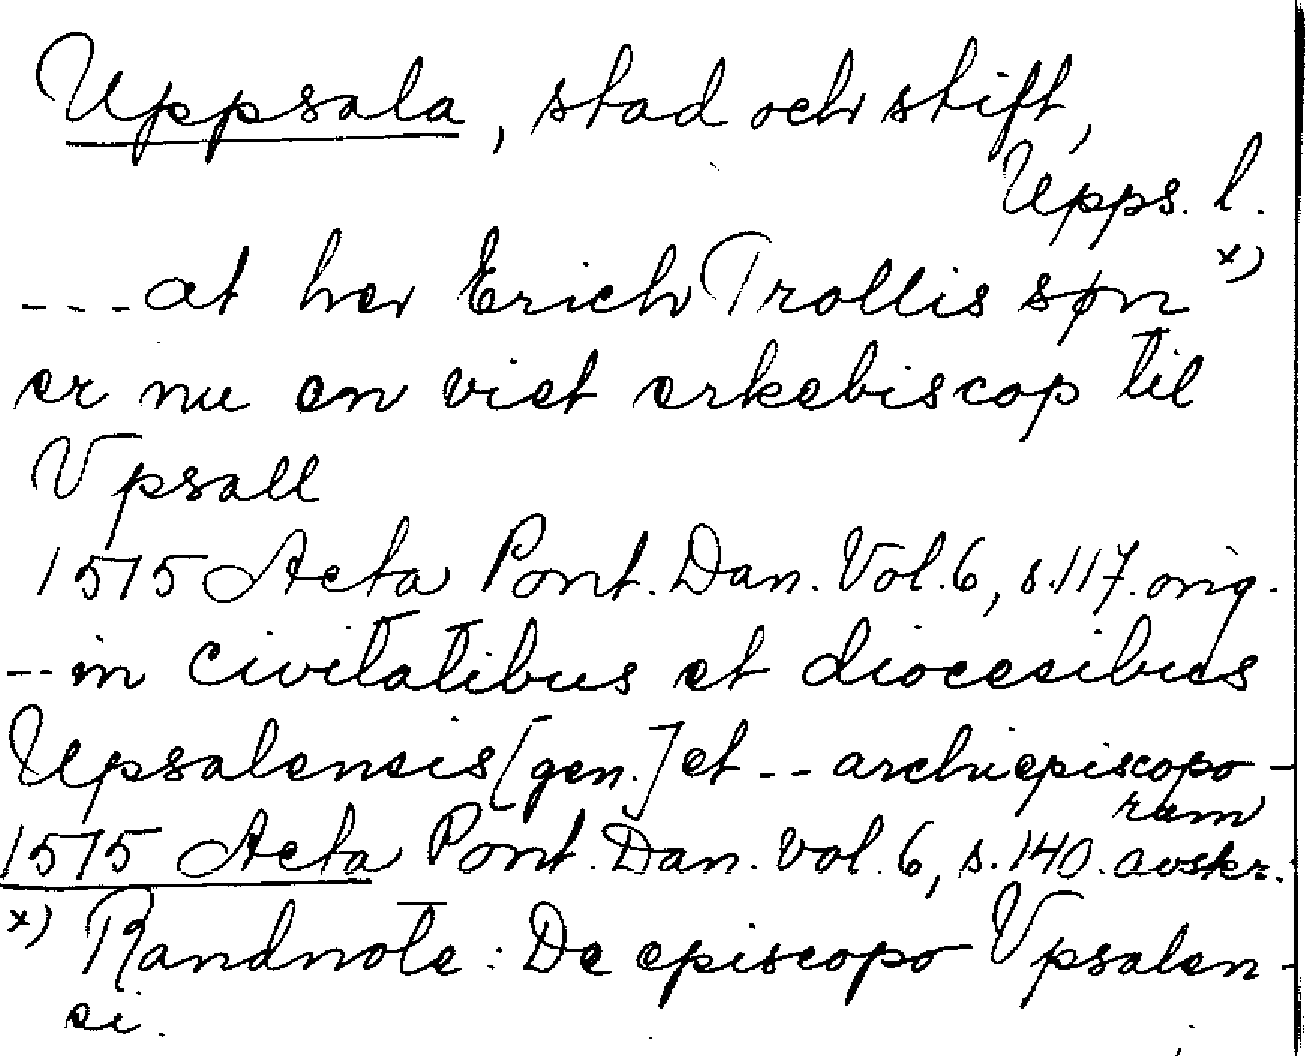 Uppsala, stad och stift,
Upps. l.
---at her Erich Trollis søn x)
er nu en viet erkebiscop til
Vpsall
1515 Acta Pont. Dan. Vol. 6, s. 117. orig.
--in civitatibus et diocesibus
Upsalensis [gen.] et -- archiepiscopo-
rum
1515 Acta Pont. Dan. vol. 6, s. 140. avskr.
x) Randnote: De episcopo Vpsalen-
si.